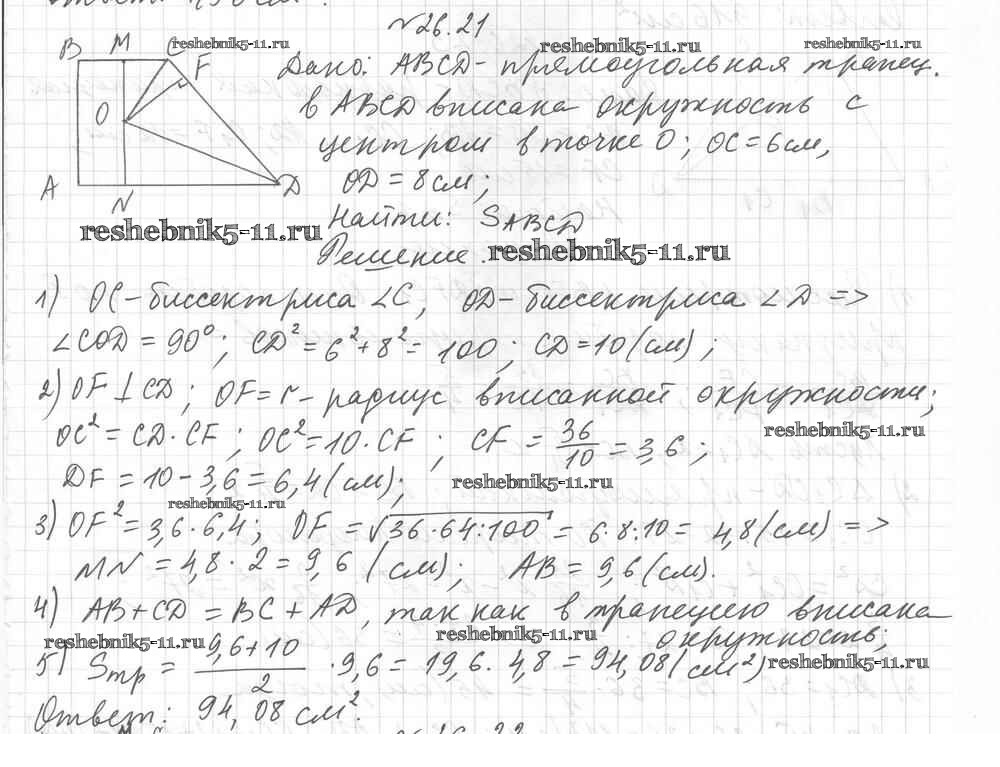 №26.21
B M C F
O
A N D
reshebnik5-11.ru reshebnik5-11.ru reshebnik5-11.ru
Дано: ABCD - прямоугольная трапец.
в ABCD вписана окружность с
центром в точке O; OC = 6 см,
OD = 8 см;
Найти: S ABCD
reshebnik5-11.ru
Решение. reshebnik5-11.ru
1) OC - биссектриса ∠C, OD - биссектриса ∠D =>
∠COD = 90°; CD² = 6² + 8² = 100; CD = 10 (см);
2) OF ⊥ CD; OF = r - радиус вписанной окружности;
reshebnik5-11.ru
OC² = CD · CF; OC² = 10 · CF; CF = 36/10 = 3,6;
DF = 10 - 3,6 = 6,4 (см); reshebnik5-11.ru
reshebnik5-11.ru
3) OF² = 3,6 · 6,4; OF = √36·64:100 = 6·8:10 = 4,8 (см) =>
MN = 4,8 · 2 = 9,6 (см); AB = 9,6 (см).
4) AB + CD = BC + AD, так как в трапецию вписана
окружность;
reshebnik5-11.ru reshebnik5-11.ru
5) Sтр = (9,6 + 10)/2 · 9,6 = 19,6 · 4,8 = 94,08 (см²) reshebnik5-11.ru
Ответ: 94,08 см².